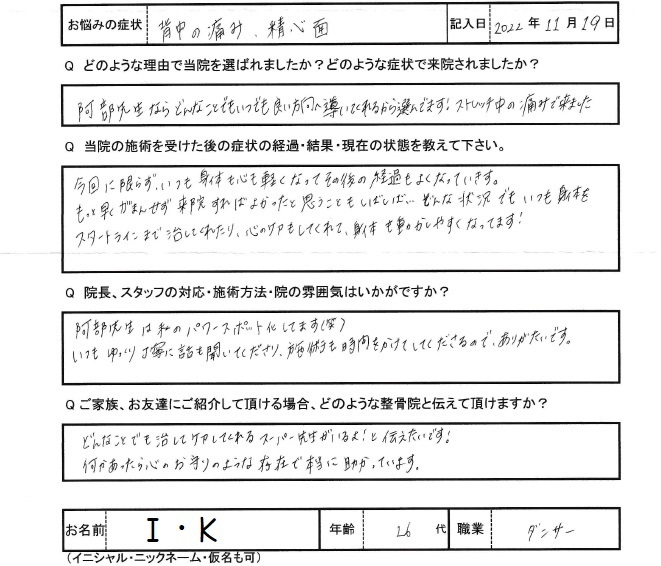 お悩みの症状 背中の痛み、精神面 記入日 2022年11月19日
Q どのような理由で当院を選ばれましたか？どのような症状で来院されましたか？
阿部先生ならどんなことでもいつでも良い方向へ導いてくれるから選んでます！ストレッチ中の痛みで来ました
Q 当院の施術を受けた後の症状の経過・結果・現在の状態を教えて下さい。
今回に限らず、いつも身体も心も軽くなってその後の経過もよくなっていきます。
もっと早くがまんせず来院すればよかったと思うこともしばしば… どんな状況でもいつも身体を
スタートラインまで治してくれたり、心のケアもしてくれて、身体も動かしやすくなってます！
Q 院長、スタッフの対応・施術方法・院の雰囲気はいかがですか？
阿部先生は私のパワースポット化してます(笑)
いつもゆっくり丁寧に話も聞いてくださり、施術も時間をかけてしてくださるので、ありがたいです。
Q ご家族、お友達にご紹介して頂ける場合、どのような整骨院と伝えて頂けますか？
どんなことでも治してケアしてくれるスーパー先生がいるよ！と伝えたいです！
何かあったら心のお守りのような存在で本当に助かっています。
お名前 I・K 年齢 26代 職業 ダンサー
（イニシャル・ニックネーム・仮名も可）